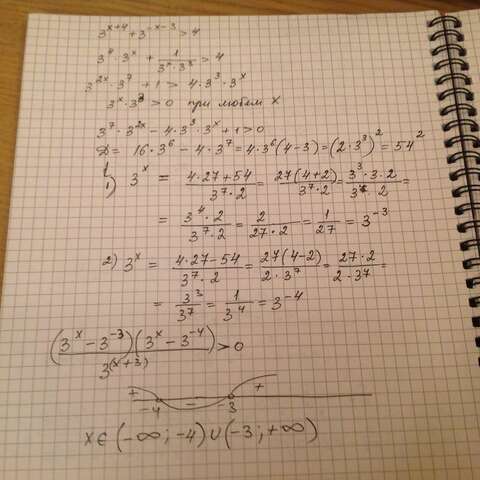 3^{x+4} + 3^{-x-3} > 4
3^4 · 3^x + 1/(3^x · 3^3) > 4
3^{2x} · 3^7 + 1 > 4 · 3^3 · 3^x
3^x · 3^3 > 0 при любом x
3^7 · 3^{2x} − 4 · 3^3 · 3^x + 1 > 0
D = 16 · 3^6 − 4 · 3^7 = 4 · 3^6 (4 − 3) = (2 · 3^3)^2 = 54^2
1) 3^x = (4 · 27 + 54)/(3^7 · 2) = 27(4 + 2)/(3^7 · 2) = (3^3 · 3 · 2)/(3^7 · 2) =
= (3^4 · 2)/(3^7 · 2) = 2/(27 · 2) = 1/27 = 3^{−3}
2) 3^x = (4 · 27 − 54)/(3^7 · 2) = 27(4 − 2)/(2 · 3^7) = (27 · 2)/(2 · 37) =
= 3^3/3^7 = 1/3^4 = 3^{−4}
(3^x − 3^{−3})(3^x − 3^{−4})/3^{(x+3)} > 0
+ − +
−4 −3
x ∈ (−∞; −4) ∪ (−3; +∞)